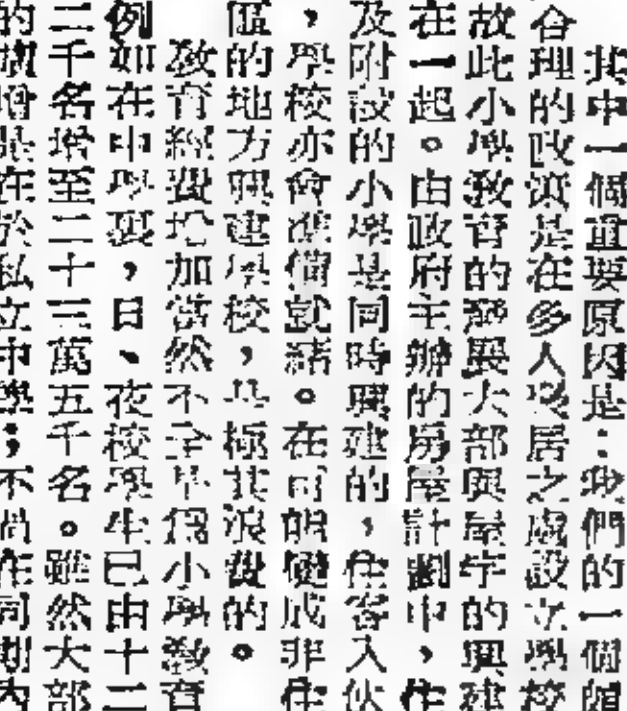 其中一個重要原因是：我們的一個頗
合理的政策是在多人聚居之處設立學校
故此小學教育的發展大部與屋宇的興建
在一起。由政府主辦的房屋計劃中，住
及附設的小學是同時興建的，住客入伙
，學校亦會準備就緒。在可能變成非住
區的地方興建學校，是極其浪費的。
教育經費增加當然不全是爲小學教育
例如在中學裏，日、夜校學生已由十二
二千名增至二十三萬五千名。雖然大部
的激增是在於私立中學；不尚在同期內